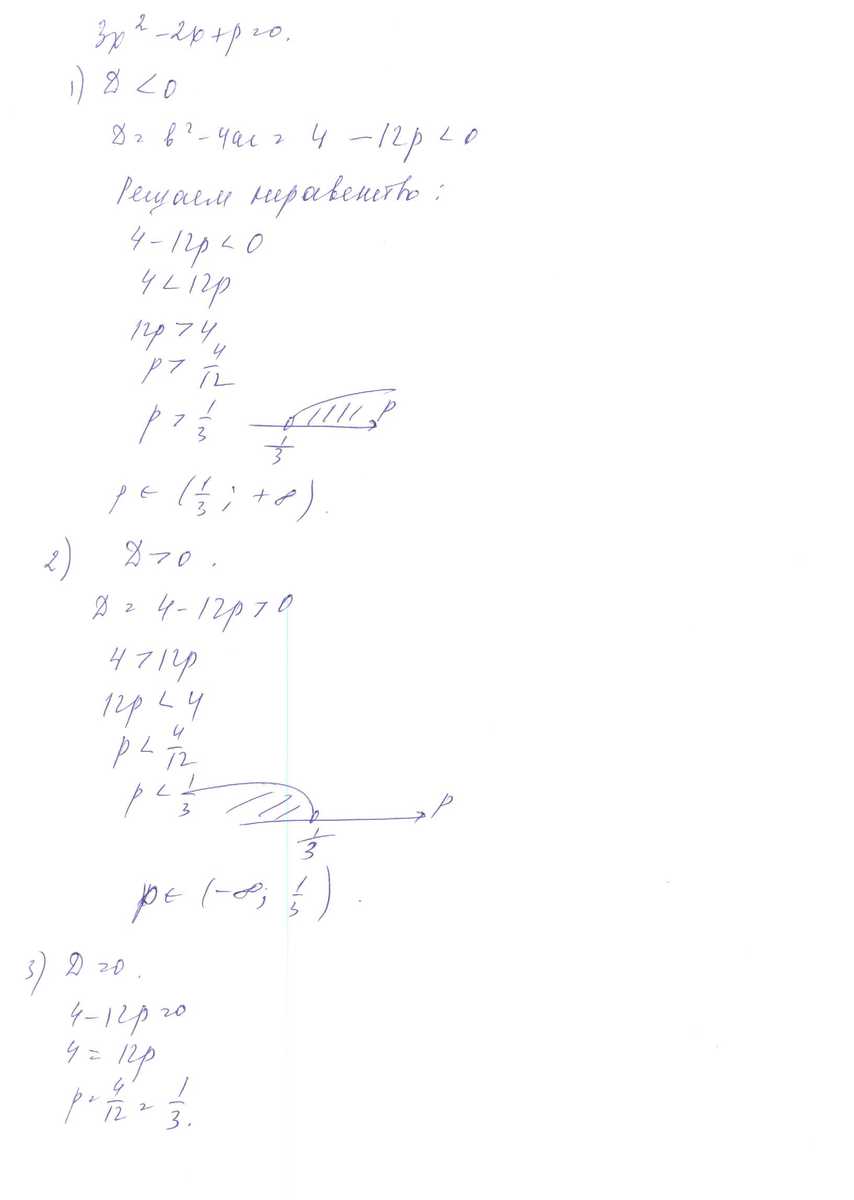 3x² - 2x + p = 0.
1) D < 0
D = b² - 4ac = 4 - 12p < 0
Решаем неравенство:
4 - 12p < 0
4 < 12p
12p > 4
p > 4/12
p > 1/3
p
1/3
p ∈ (1/3; +∞).
2) D > 0.
D = 4 - 12p > 0
4 > 12p
12p < 4
p < 4/12
p < 1/3
p
1/3
p ∈ (-∞; 1/3).
3) D = 0.
4 - 12p = 0
4 = 12p
p = 4/12 = 1/3.